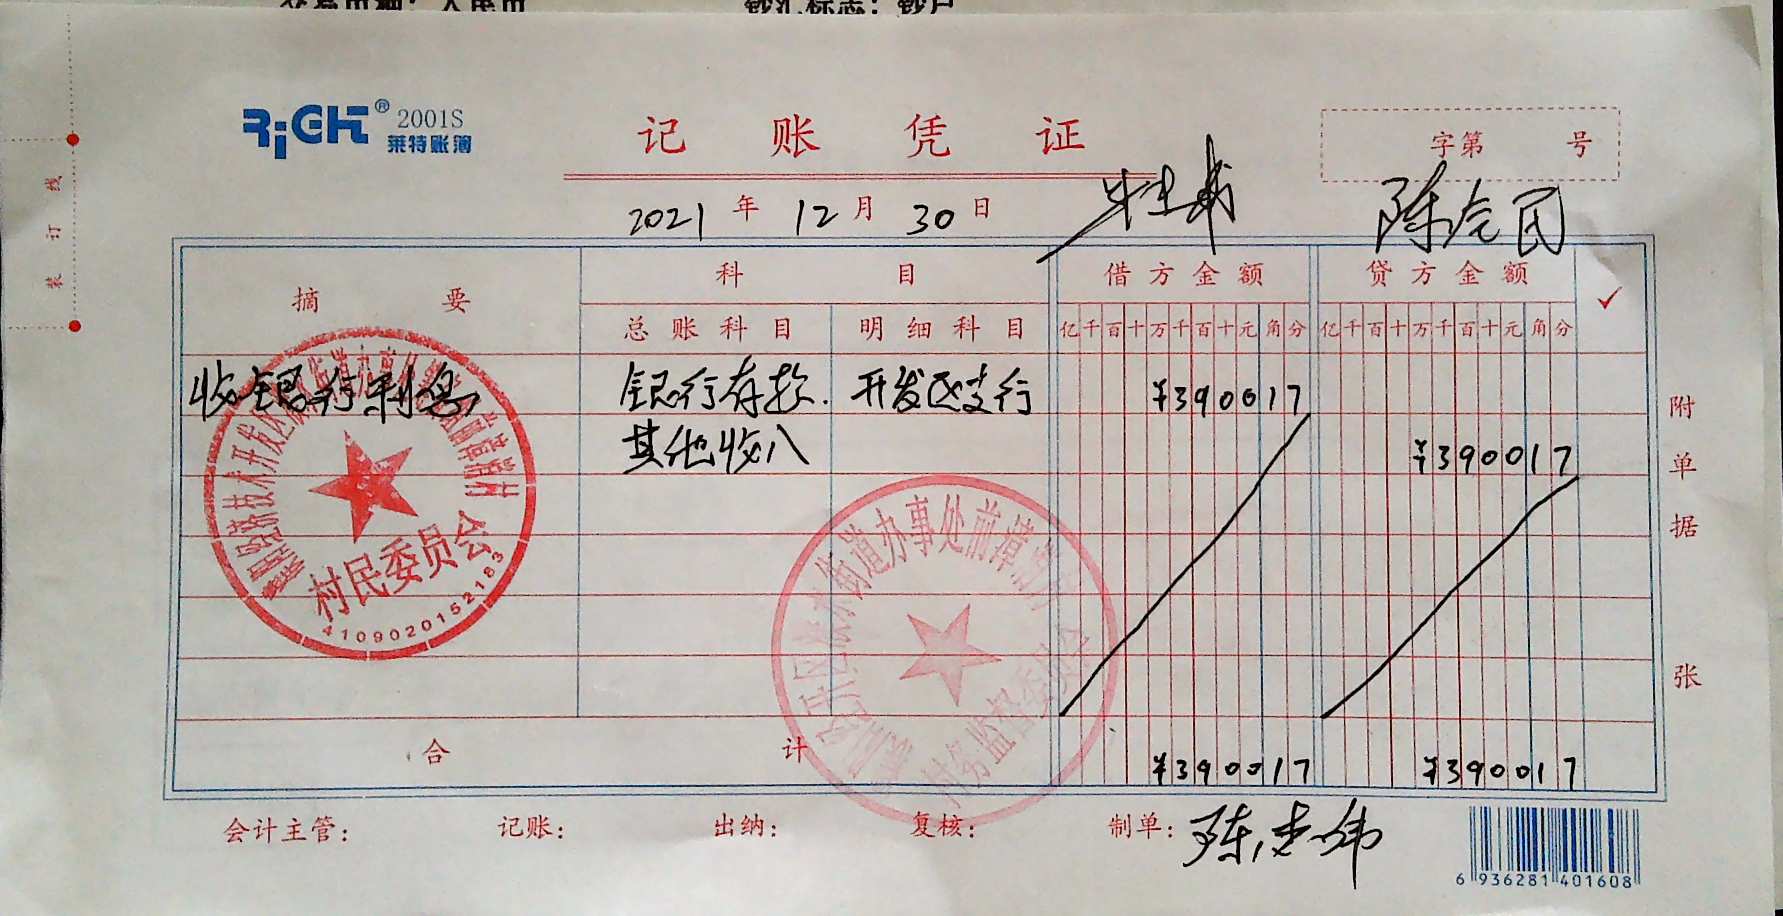 钞汇标志：钞户
RiGHT® 2001S
莱特账簿
记账凭证
字第 号
2021 年 12 月 30 日
装订线
摘要
科目
借方金额
贷方金额
✓
总账科目 明细科目
亿千百十万千百十元角分
亿千百十万千百十元角分
收银行利息
银行存款 开发区支行
¥390017
其他收入
¥390017
附单据 张
村民委员会
4109020152183
街道办事处前漳
村务监督委员会
合计
¥390017
¥390017
会计主管：
记账：
出纳：
复核：
制单：
6 936281 401608